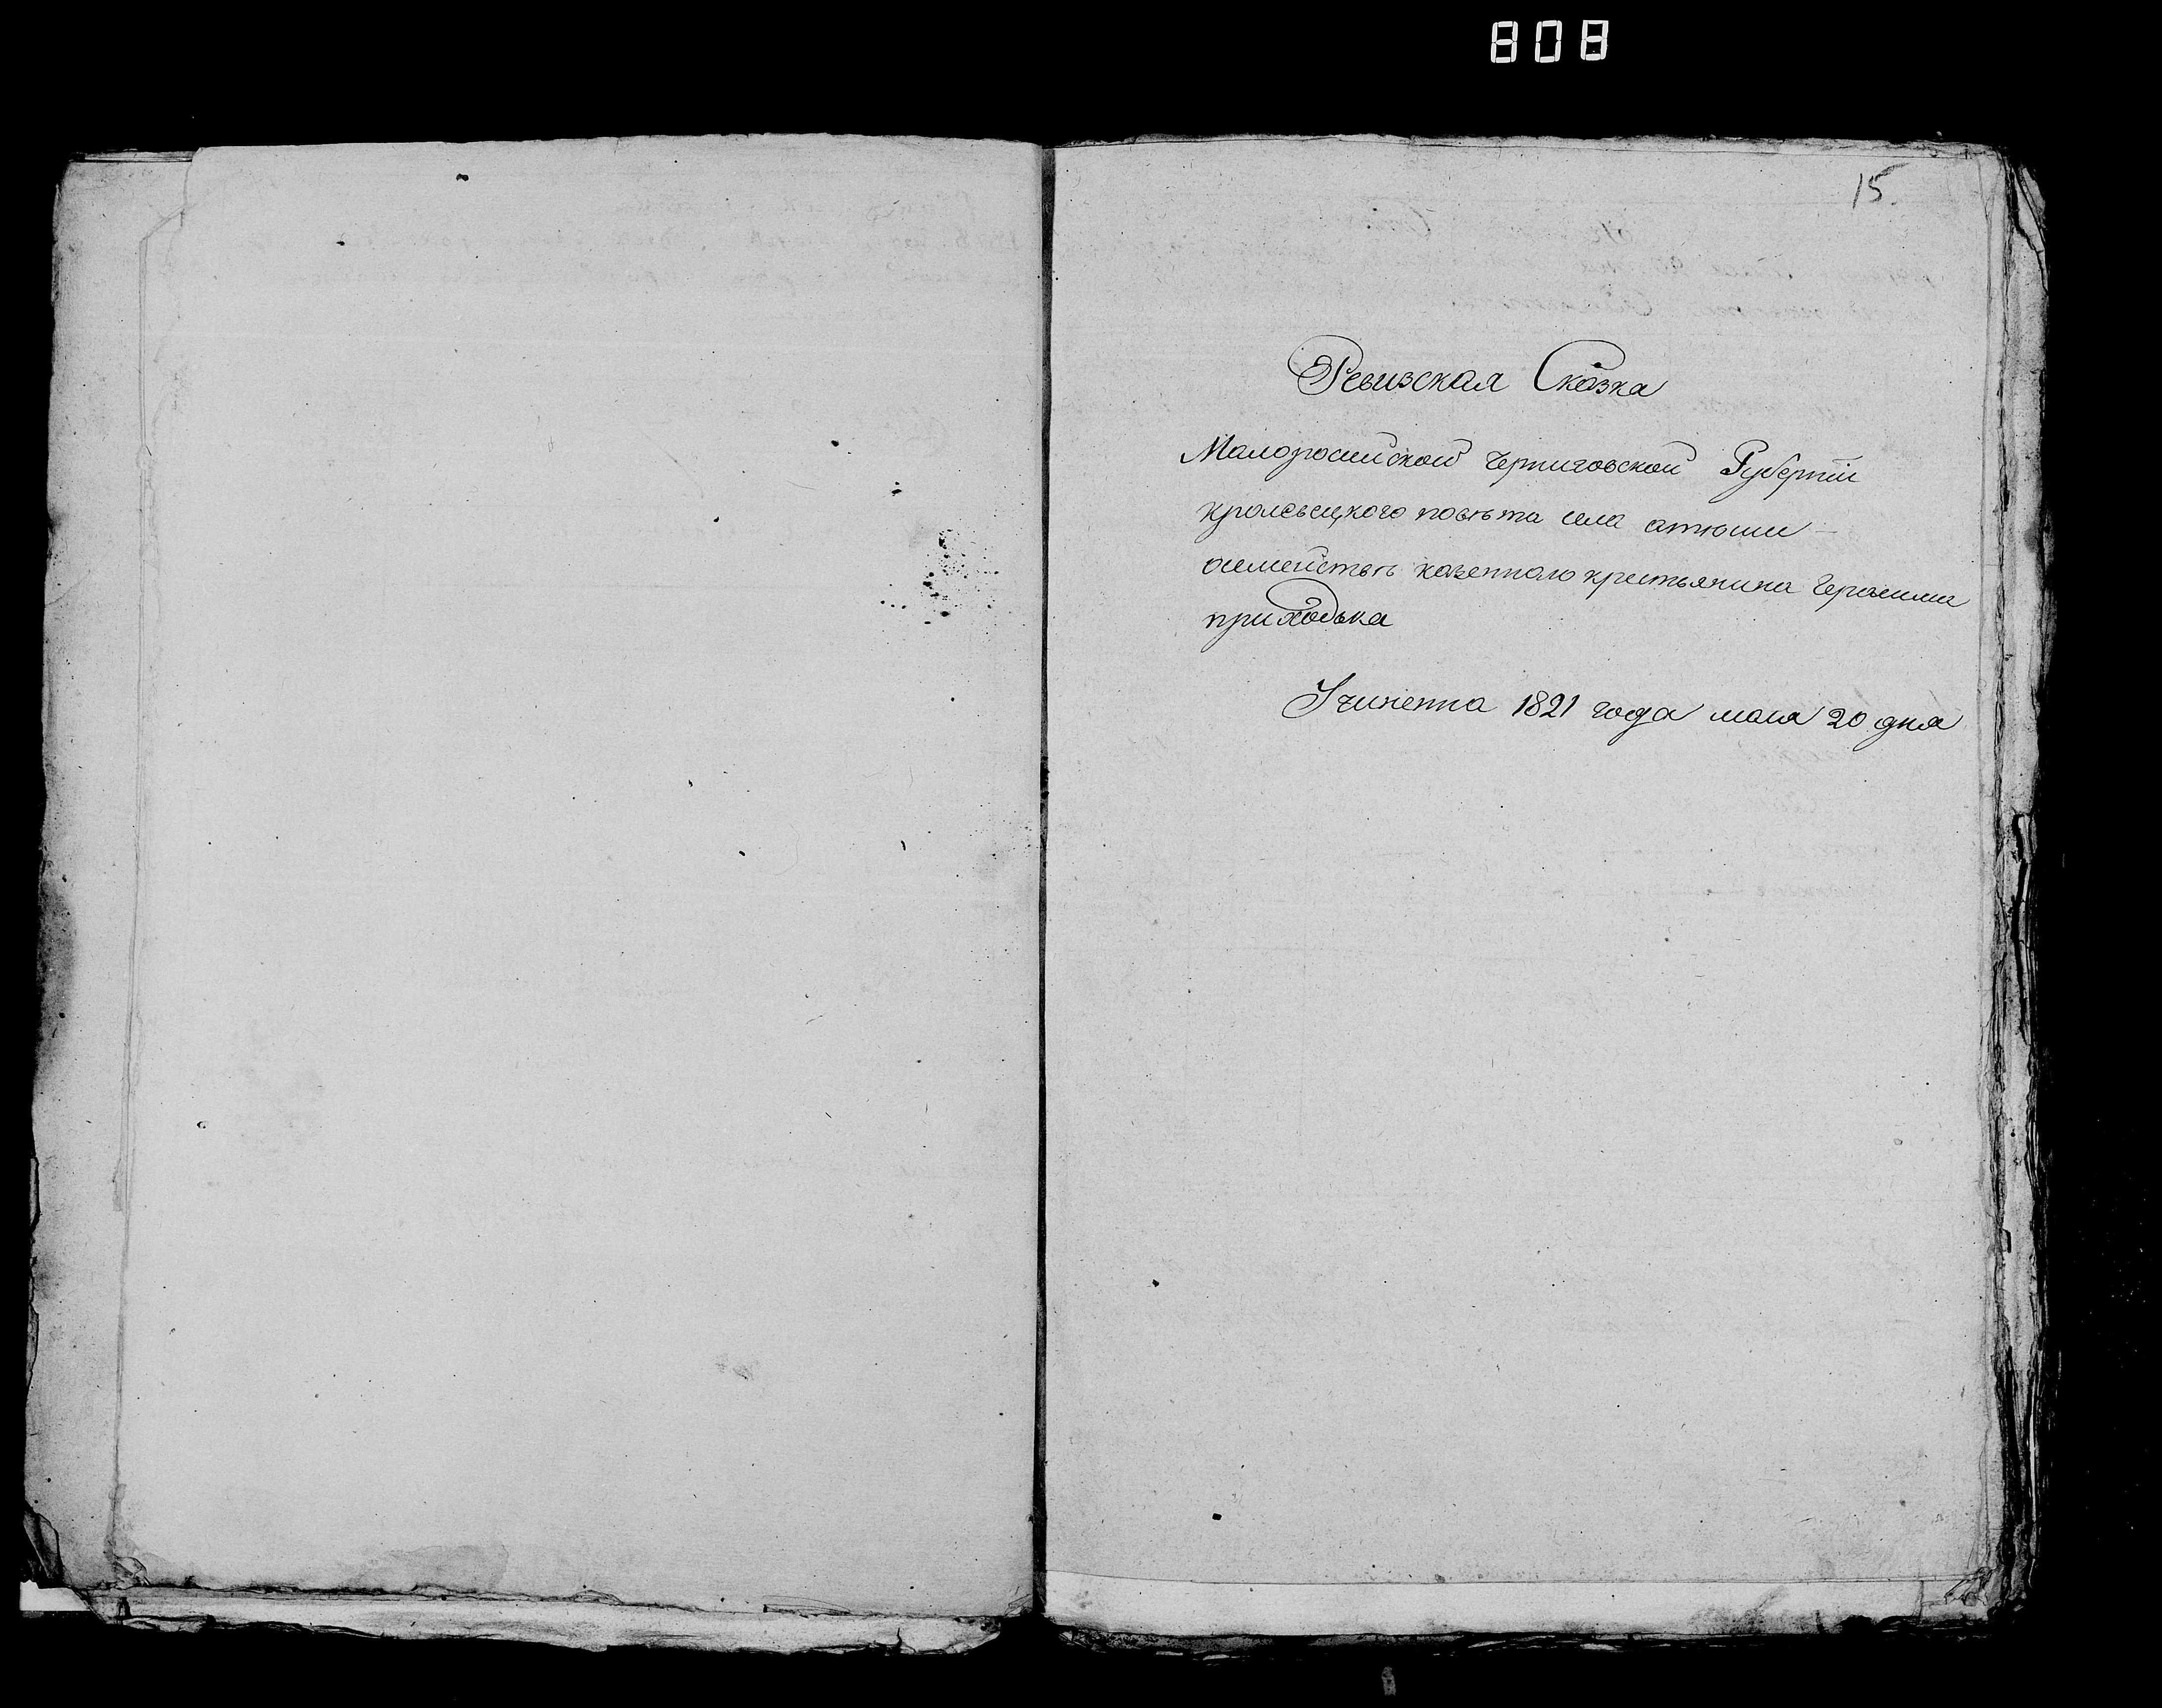 808
15.
Ревизская Сказка
Малоросийской Черниговской Губернїи
кролевецкого повѣта села атюши
осемействѣ казенного крестьянина Герасима
приходька
Учиненна 1821 года маия 20 дня